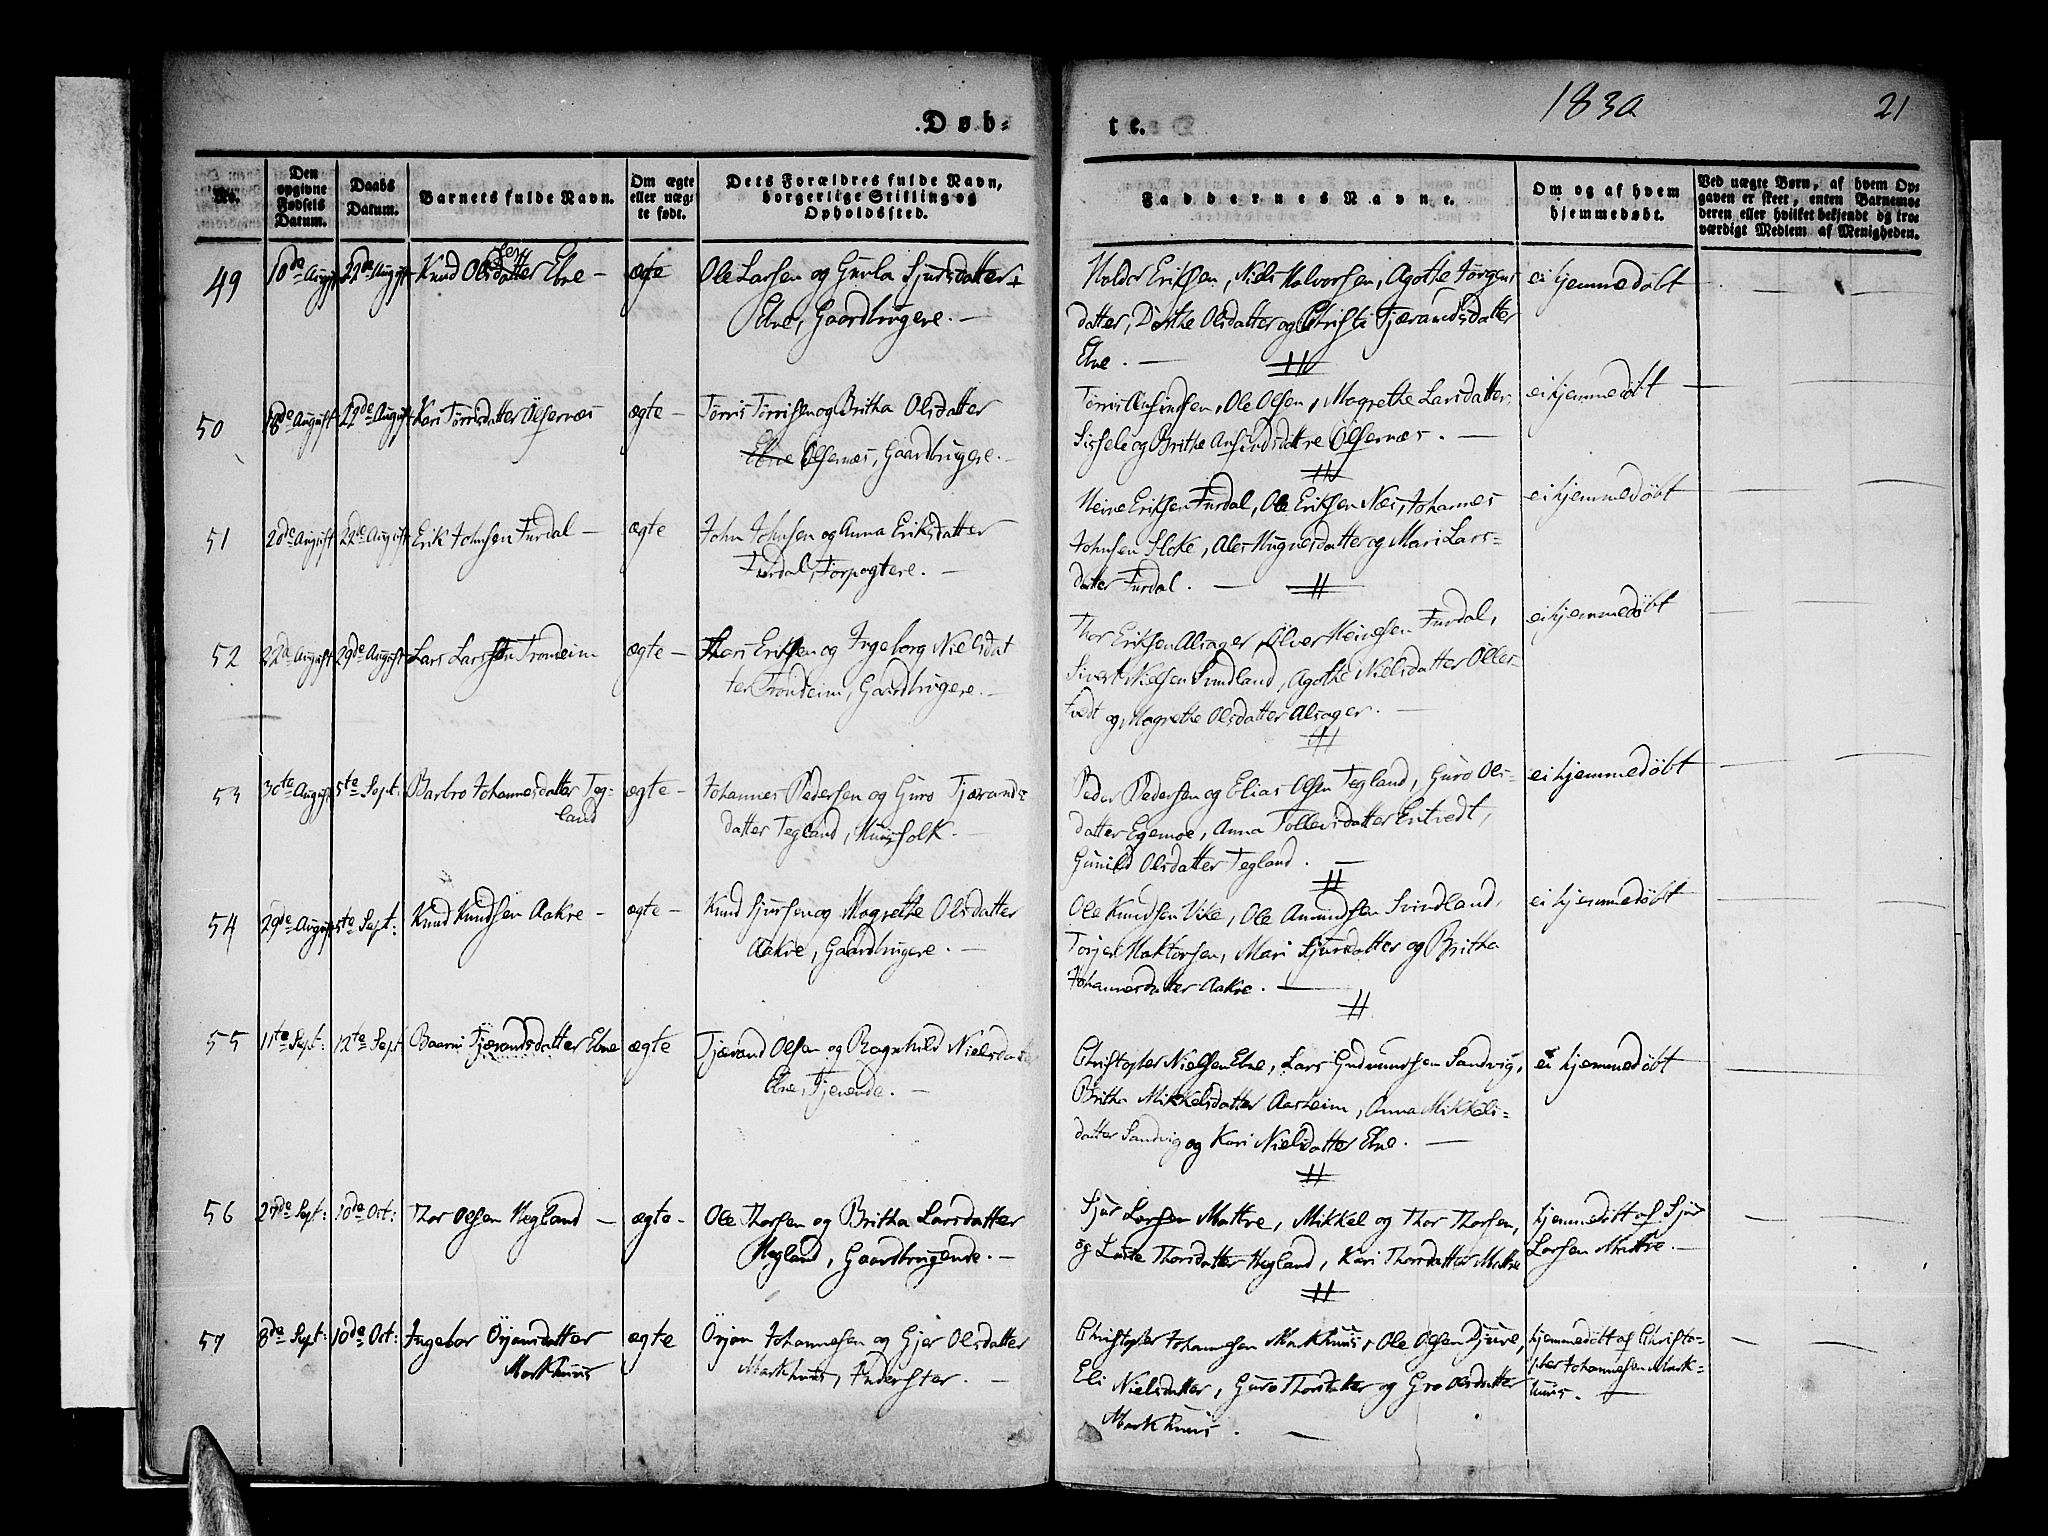 1830
21
Døb-
te.
No.
Den opgivne Fødsels Datum.
Daabs Datum.
Barnets fulde Navn.
Om ægte eller uægte født.
Dets Forældres fulde Navn, borgerlige Stilling og Opholdssted.
Faddernes Navne.
Om og af hvem hjemmedøbt.
Ved uægte Børn, af hvem Opgaven er skeet, enten Barnemoderen eller hvilket bekjendt og troeværdigt Medlem af Menigheden.
49 10de August 22de August Knud Olsdatter sen Ebne - ægte Ole Larsen og Gurla Sjursdatter
Ebne, Gaardbrugere. -
Halvor Eriksen, Niels Halvorsen, Agothe Jørgens
datter, Dorthe Olsdatter og Christi Tjærandsdatter
Ebne. -
ei hjemmedøbt
50 18de August 29de August Kari Tørrisdatter Ølfernæs ægte - Tørris Tørrisen og Britha Olsdatter
Ebne Ølfernæs, Gaardbrugere. -
Tørris Ansindsen, Ole Olsen, Magrethe Larsdatter,
Sissele og Britha Ansindsdattre Ølfernæs. -
ei hjemmedøbt
51 20de August 22de August Erik Johnsen Furdal - ægte John Johnsen og Anna Eriksdatter
Furdal, Forpagtere. -
Heine Eriksen Furdal, Ole Eriksen Næs, Johannes
Johnsen, Ales Magnesdatter og Mari Lars-
datter Furdal. -
ei hjemmedøbt
52 22de August 29de August Lars Larssen Tronheim ægte - Lars Eriksen og Ingeborg Nielsdat
ter Tronheim, Gaardbrugere. -
Thor Eriksen Alsager, Ølver Heinesen Furdal,
Sivert Nielsen Sundland, Agothe Nielsdatter Ølles-
tvedt og Magrethe Olsdatter Alsager. -
ei hjemmedøbt
53 30te August 5te Sept: Barbro Johannesdatter Teg-
land ægte - Johannes Pedersen og Guro Tjærands
datter Tegland, Huusfolk. -
Peder Pedersen og Elias Olsen Tegland, Guro Ols-
datter Egemoe, Anna Tollevsdatter Entvedt,
Gunild Olsdatter Tegland. -
ei hjemmedøbt
54 29de August 5te Sept: Knud Knudsen Aakre - ægte - Knud Sjursen og Magrethe Olsdatter
Aakre, Gaardbrugere. -
Ole Knudsen Vike, Ole Amundsen Svindland,
Torjer Haktorsen, Mari Sjursdatter og Britha
Johannesdatter Aakre. -
ei hjemmedøbt
55 11te Sept: 12te Sept Baarni Tjærandsdatter Ebne ægte Tjærand Olsen og Ragnhild Nielsdat
Ebne, Tjenende. -
Christopher Nielsen Ebne, Lars Gudmundsen Sandvig,
Britha Mikkelsdatter Aasheim, Anna Mikkels-
datter Sandvig og Kari Nielsdatter Ebne. -
ei hjemmedøbt
56 27de Sept: 10de Oct: Thor Olsen Hegland - ægte - Ole Thorsen og Britha Larsdatter
Hegland, Gaardbrugende. -
Sjur Larsen Mattre, Mikkel og Thor Thorsen,
og Thorsdatter Hegland, Kari Thorsdatter Mattre
hjemmedøbt af Sjur
Larsen Mattre. -
57 8de Sept: 10de Oct: Ingebor Örjansdatter
Markhuus ægte Örjan Johannesen og Gjer Olsdatter
Markhuus, Inderster. -
Christopher Johannesen Markhuus, Ole Olsen Djuve,
Eli Nielsdatter, Guro Thorsdatter og Gro Olsdatter
Markhuus. -
hjemmedøbt af Christo-
pher Johannesen Mark-
huus. -